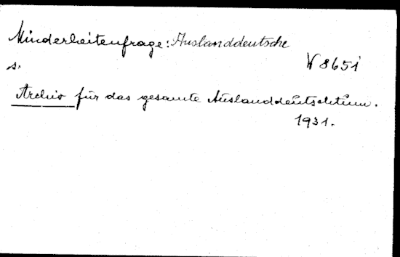 Minderheitenfrage: Auslanddeutsche
W 8651
s.
Archiv für das gesamte Auslanddeutschtum.
1931.